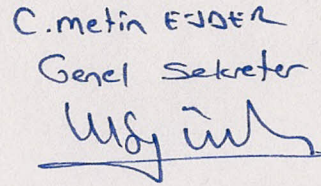 C. metin EJDER
Genel Sekreter